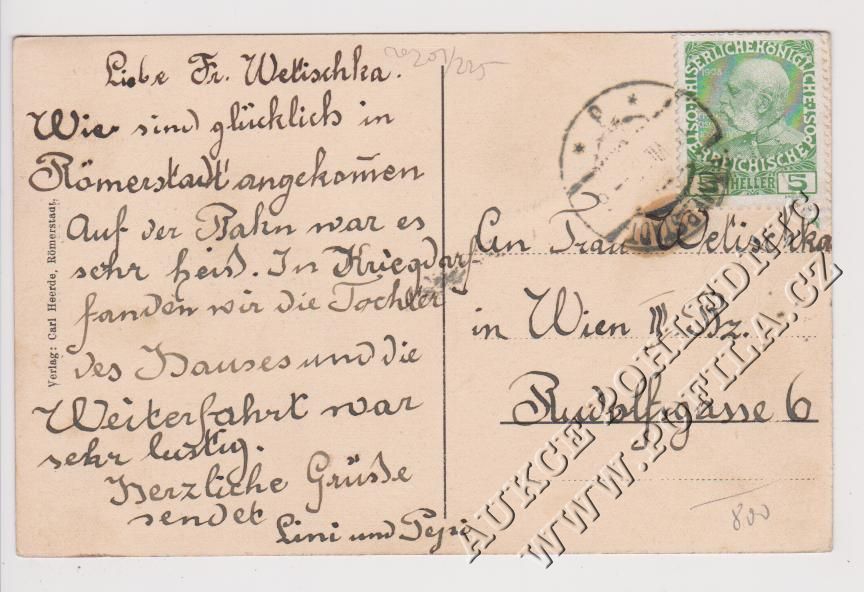 Liebe Fr. Wetischka.
Wir sind glücklich in
Römerstadt angekom̄en
Auf der Bahn war es
sehr heiß. In Kriegdorf
fanden wir die Tochter
des Hauses und die
Weiterfahrt war
sehr lustig.
Herzliche Grüße
sendet
Lini und Pepi
Verlag: Carl Heerde, Römerstadt.
KAISERLICHE KÖNIGLICHE
ÖSTERREICHISCHE POST
1908
5 HELLER 5
An Frau Wetischka
in Wien III Bz.
Rudolfsgasse 6
800
AUKCE POHLEDNIC
WWW.POFILA.CZ